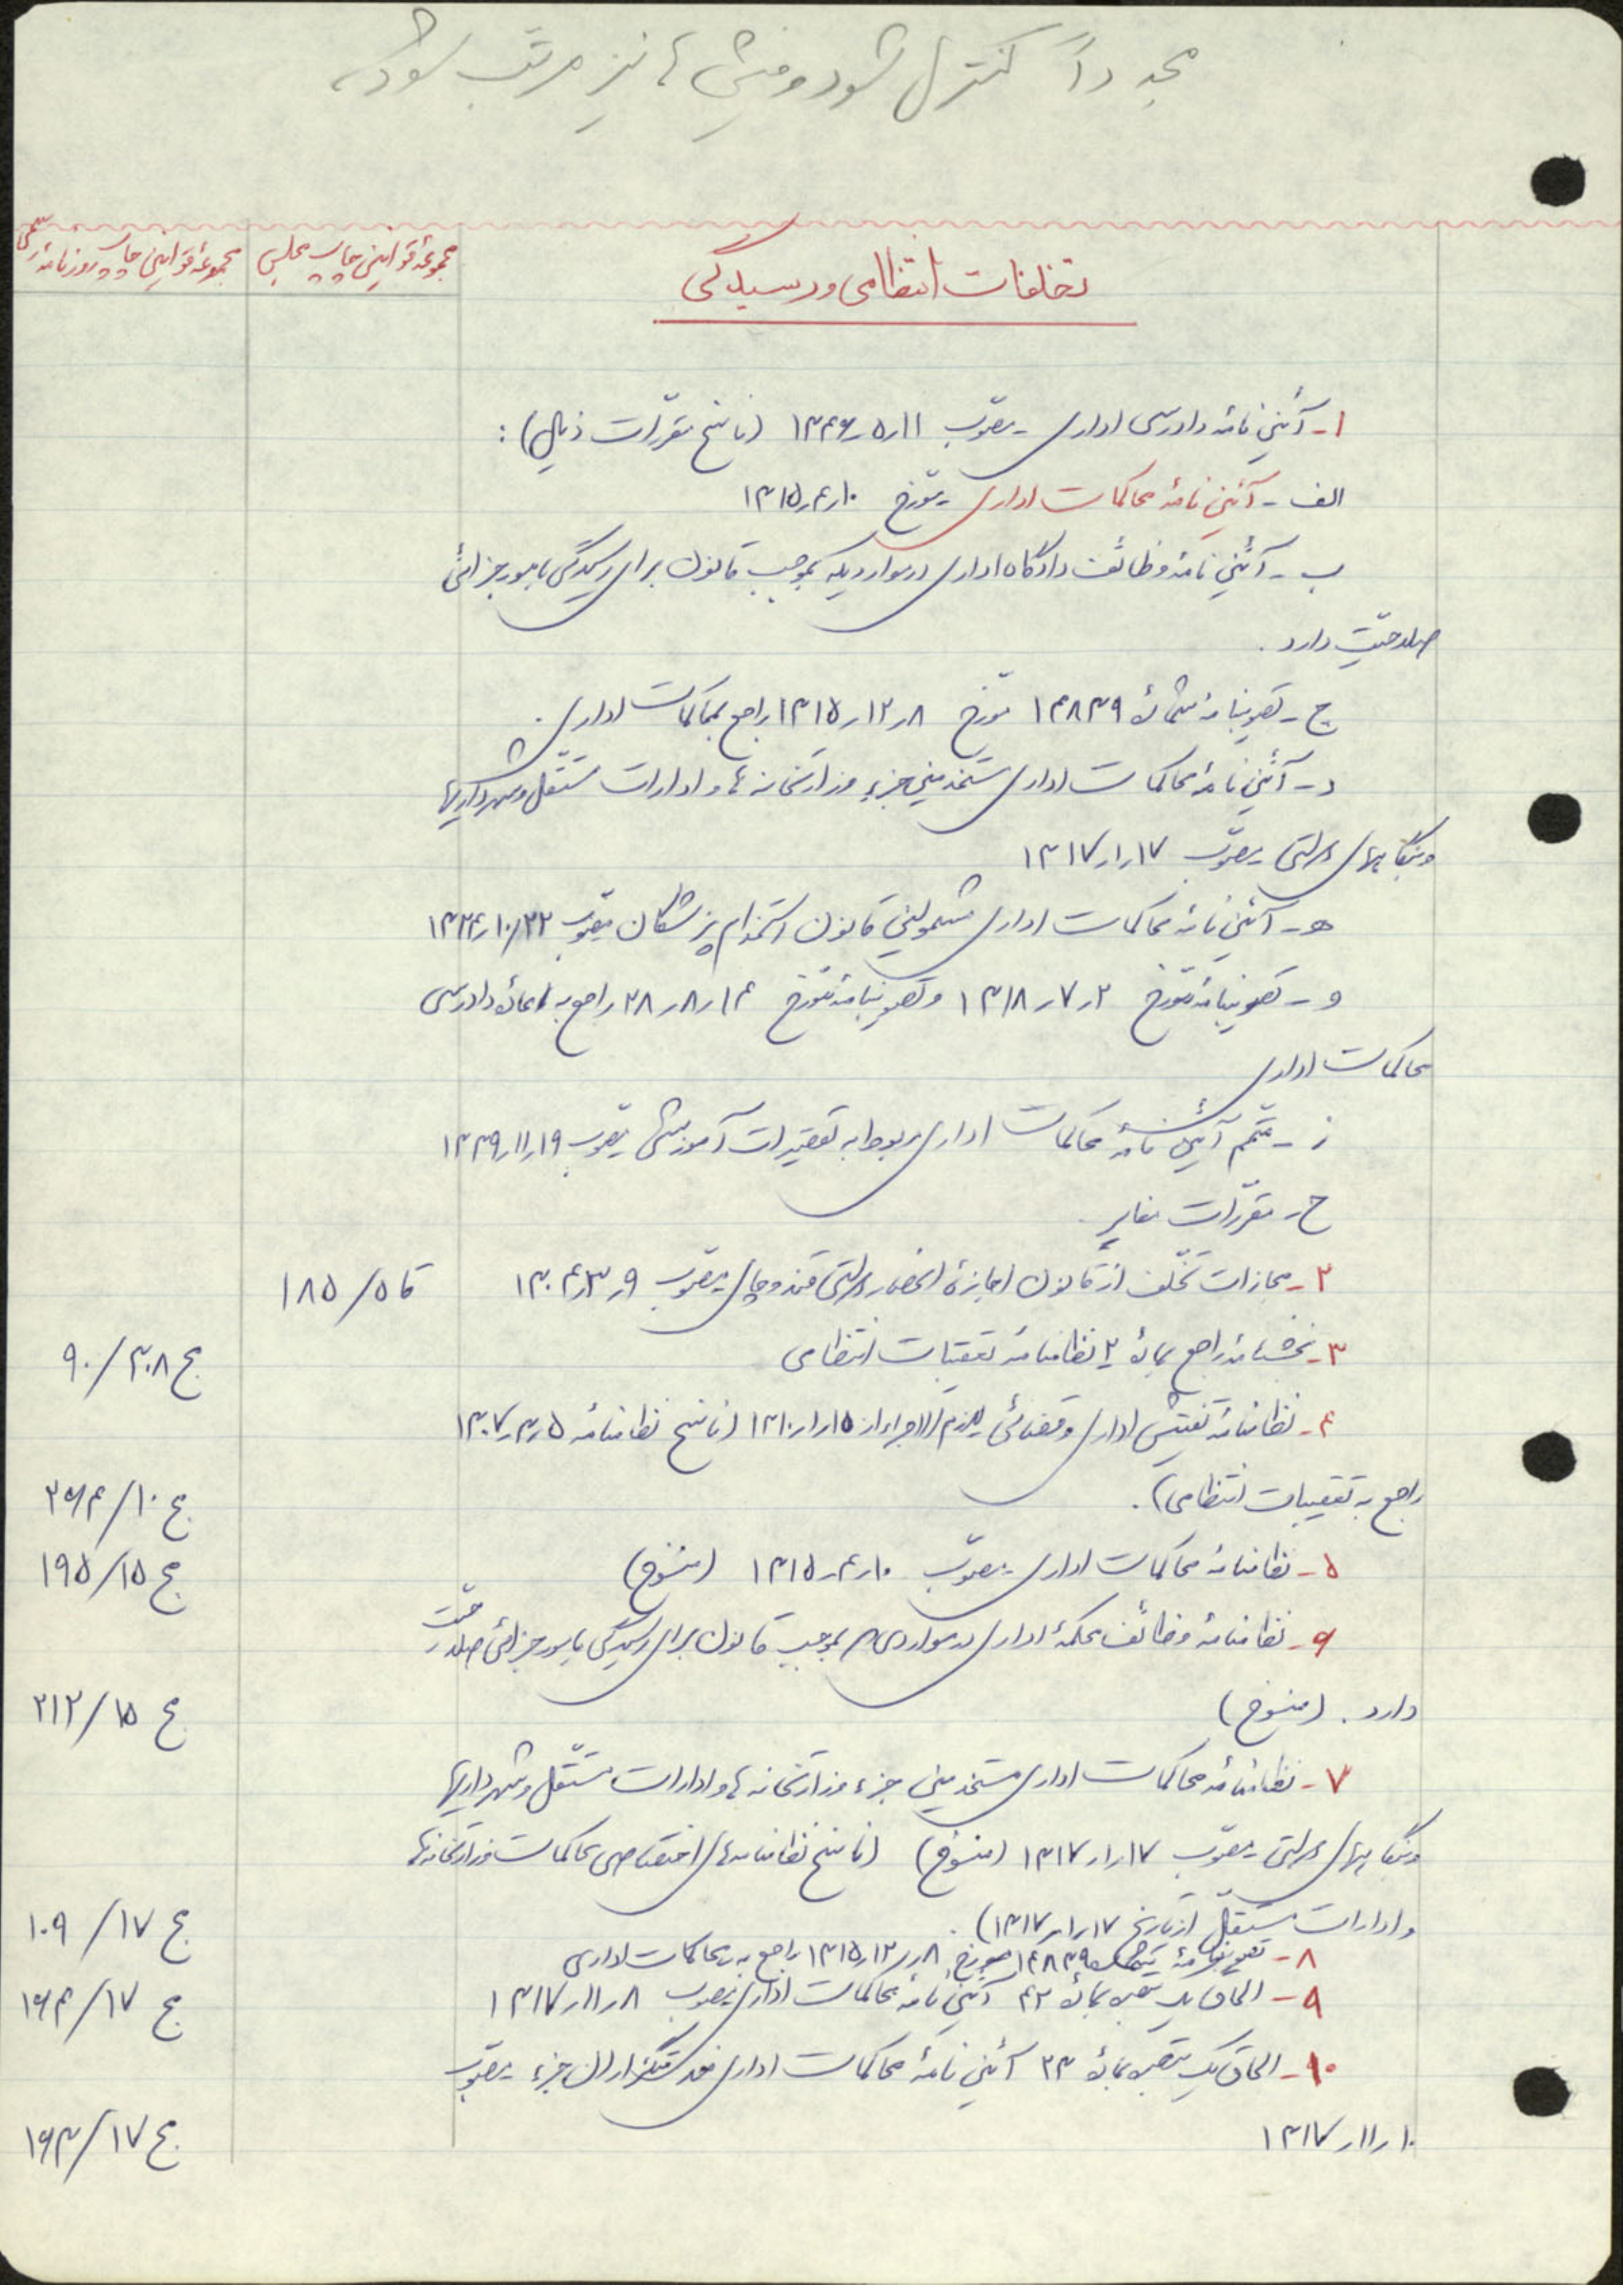 مجدداً کنترل شود و فیش‌ها نیز مرتب شود
مجموعهٔ قوانین چاپ مجلس
مجموعهٔ قوانین چاپ روزنامهٔ رسمی
تخلفات انتظامی و رسیدگی
۱- آئین‌نامهٔ دادرسی اداری - مصوّب ۱۱ر۵ر۱۳۴۶ (ناسخ مقرّرات ذیل):
الف - آئین‌نامهٔ محاکمات اداری - مورّخ ۱۰ر۴ر۱۳۱۵
ب - آئین‌نامهٔ وظائف دادگاه اداری در مواردیکه بموجب قانون برای رسیدگی بامور جزائی
صلاحیّت دارد.
ج - تصویبنامهٔ شمارهٔ ۱۴۸۳۹ مورّخ ۸ر۱۲ر۱۳۱۵ راجع بمحاکمات اداری.
د - آئین‌نامهٔ محاکمات اداری مستخدمین جزء وزارتخانه‌ها و ادارات مستقل و شهرداریها
و بنگاههای دولتی مصوّب ۱۷ر۱ر۱۳۱۷
هـ - آئین‌نامهٔ محاکمات اداری مشمولین قانون استخدام پزشکان مصوّب ۲۲ر۱۰ر۱۳۲۴
و - تصویبنامهٔ مورّخ ۲ر۷ر۱۳۱۸ و تصویبنامهٔ مورّخ ۱۴ر۸ر۲۸ راجع به اعادهٔ دادرسی
محاکمات اداری
ز - متمّم آئین‌نامهٔ محاکمات اداری مربوط به تقصیرات آموزشی مصوّب ۱۹ر۱۱ر۱۳۳۹
ح - مقرّرات مغایر.
۲- مجازات تخلّف از قانون اجازهٔ انحصار دولتی قند و چای مصوّب ۹ر۳ر۱۳۰۴
قا ۵/۱۸۵
۳- بخشنامهٔ راجع بمادهٔ ۲ نظامنامهٔ تعقیبات انتظامی
ج ۳۰۸/۹۰
۴- نظامنامهٔ تفتیش اداری و قضائی لازم‌الاجراء از ۱۵ر۱ر۱۳۱۰ (ناسخ نظامنامه ۵ر۳ر۱۳۰۷
راجع به تعقیبات انتظامی).
ج ۱۰/۲۶۴
۵- نظامنامهٔ محاکمات اداری - مصوّب ۱۰ر۴ر۱۳۱۵ (منسوخ)
ج ۱۵/۱۹۵
۶- نظامنامهٔ وظائف محکمهٔ اداری در مواردی که بموجب قانون برای رسیدگی بامور جزائی صلاحیّت
دارد. (منسوخ)
ج ۱۵/۲۱۲
۷- نظامنامهٔ محاکمات اداری مستخدمین جزء وزارتخانه‌ها و ادارات مستقّل و شهرداریها
و بنگاههای دولتی مصوّب ۱۷ر۱ر۱۳۱۷ (منسوخ) (ناسخ نظامنامه‌های اختصاصی محاکمات وزارتخانه‌ها
و ادارات مستقّل از تاریخ ۱۷ر۱ر۱۳۱۷).
ج ۱۷/۱۰۹
۸- تصویبنامهٔ شماره ۱۴۸۳۹ مورخ ۸ر۱۲ر۱۳۱۵ راجع به محاکمات اداری
۹- الحاق یک تبصره بمادهٔ ۴۲ آئین‌نامهٔ محاکمات اداری مصوب ۸ر۱۱ر۱۳۱۷
ج ۱۷/۱۶۴
۱۰- الحاق یک تبصره بمادهٔ ۲۳ آئین‌نامهٔ محاکمات اداری خدمتگزاران جزء - مصوّب
۱۰ر۱۱ر۱۳۱۷
ج ۱۷/۱۶۳